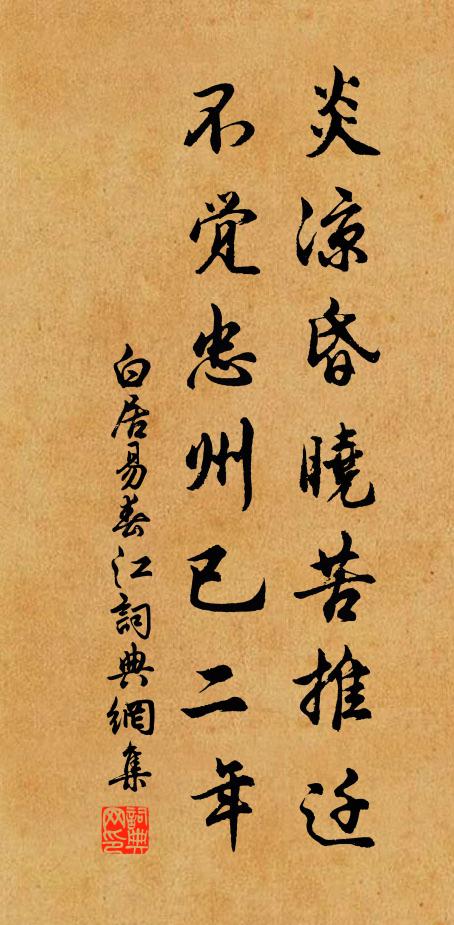 炎凉昏曉苦推迁
不觉忠州已二年
白居易春江詞典網集
詞典网印